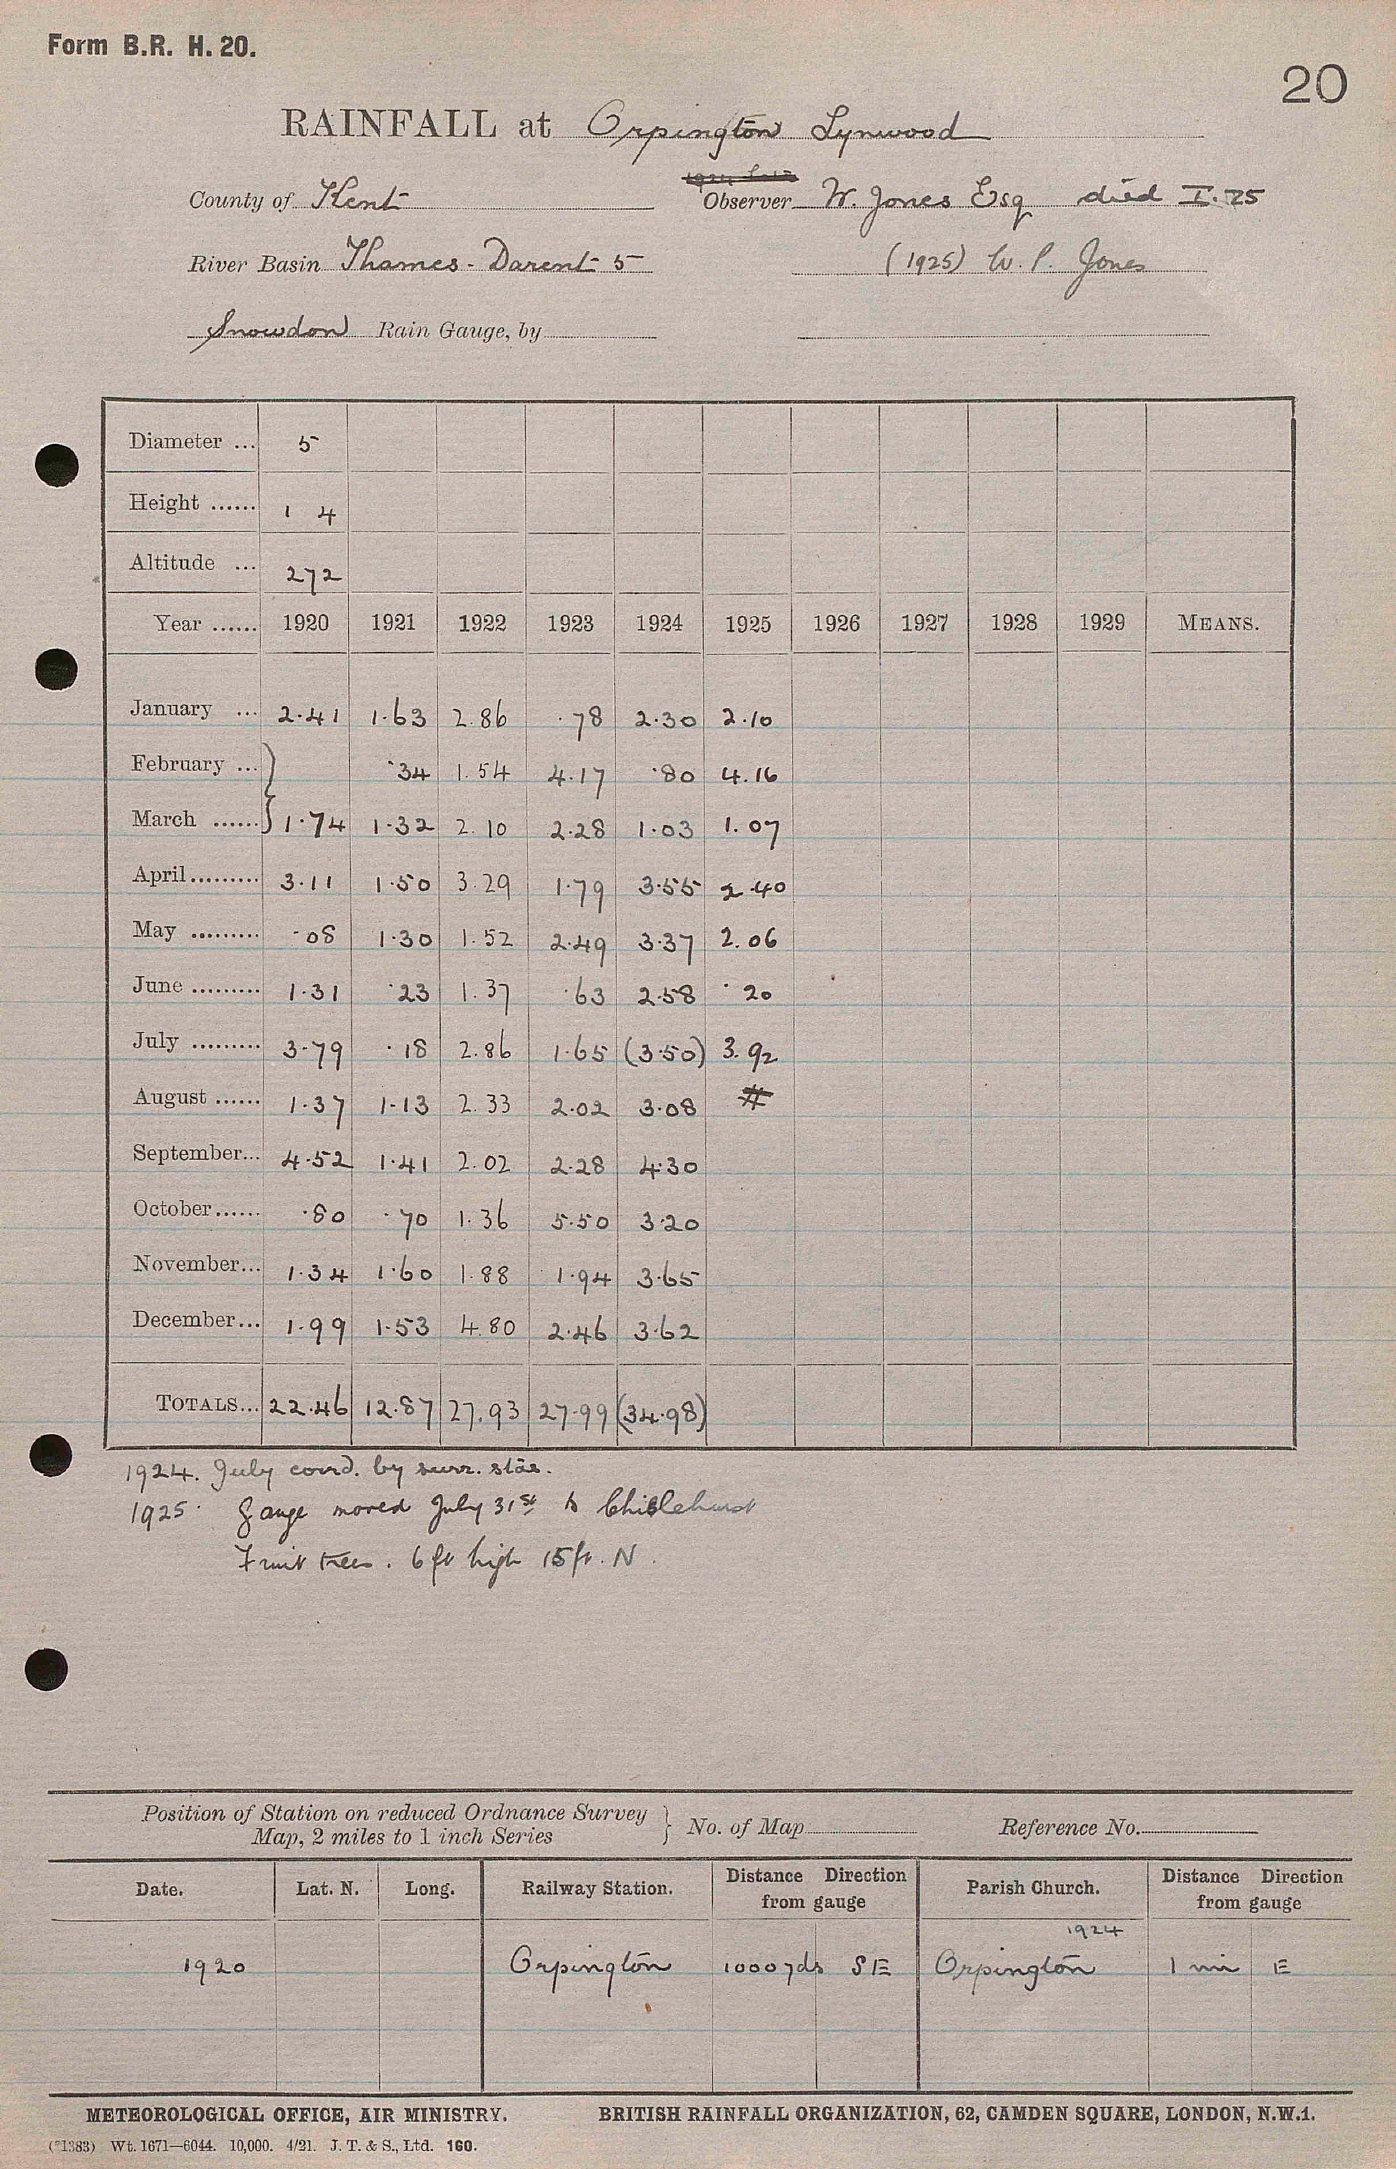 Form B.R. H. 20.
20
RAINFALL at Orpington Lynwood
County of Kent Observer W. Jones Esq died I. 25
River Basin Thames - Darent 5 (1925) W. P. Jones
Snowdon Rain Gauge, by
Diameter ... 5
Height ...... 1 4
Altitude ... 272
Year ...... 1920 1921 1922 1923 1924 1925 1926 1927 1928 1929 MEANS.
January ... 2.41 1.63 2.86 .78 2.30 2.10
February ... } .34 1.54 4.17 .80 4.16
March ...... } 1.74 1.32 2.10 2.28 1.03 1.07
April......... 3.11 1.50 3.29 1.79 3.55 2.40
May ......... .08 1.30 1.52 2.49 3.37 2.06
June ......... 1.31 .23 1.37 .63 2.58 .20
July ......... 3.79 .18 2.86 1.65 (3.50) 3.92
August ...... 1.37 1.13 2.33 2.02 3.08
September... 4.52 1.41 2.02 2.28 4.30
October...... .80 .70 1.36 5.50 3.20
November... 1.34 1.60 1.88 1.94 3.65
December... 1.99 1.53 4.80 2.46 3.62
TOTALS... 22.46 12.87 27.93 27.99 (34.98)
1924. July corrd. by surr. stns.
1925. Gauge moved July 31st to Chislehurst
Fruit trees. 6 ft high 15 ft. N.
Position of Station on reduced Ordnance Survey
Map, 2 miles to 1 inch Series } No. of Map Reference No.
Date. Lat. N. Long. Railway Station. Distance Direction from gauge Parish Church. Distance Direction from gauge
1924
1920 Orpington 1000 yds SE Orpington 1 mi E
METEOROLOGICAL OFFICE, AIR MINISTRY. BRITISH RAINFALL ORGANIZATION, 62, CAMDEN SQUARE, LONDON, N.W.1.
(*1383) Wt. 1671—6044. 10,000. 4/21. J. T. & S., Ltd. 160.